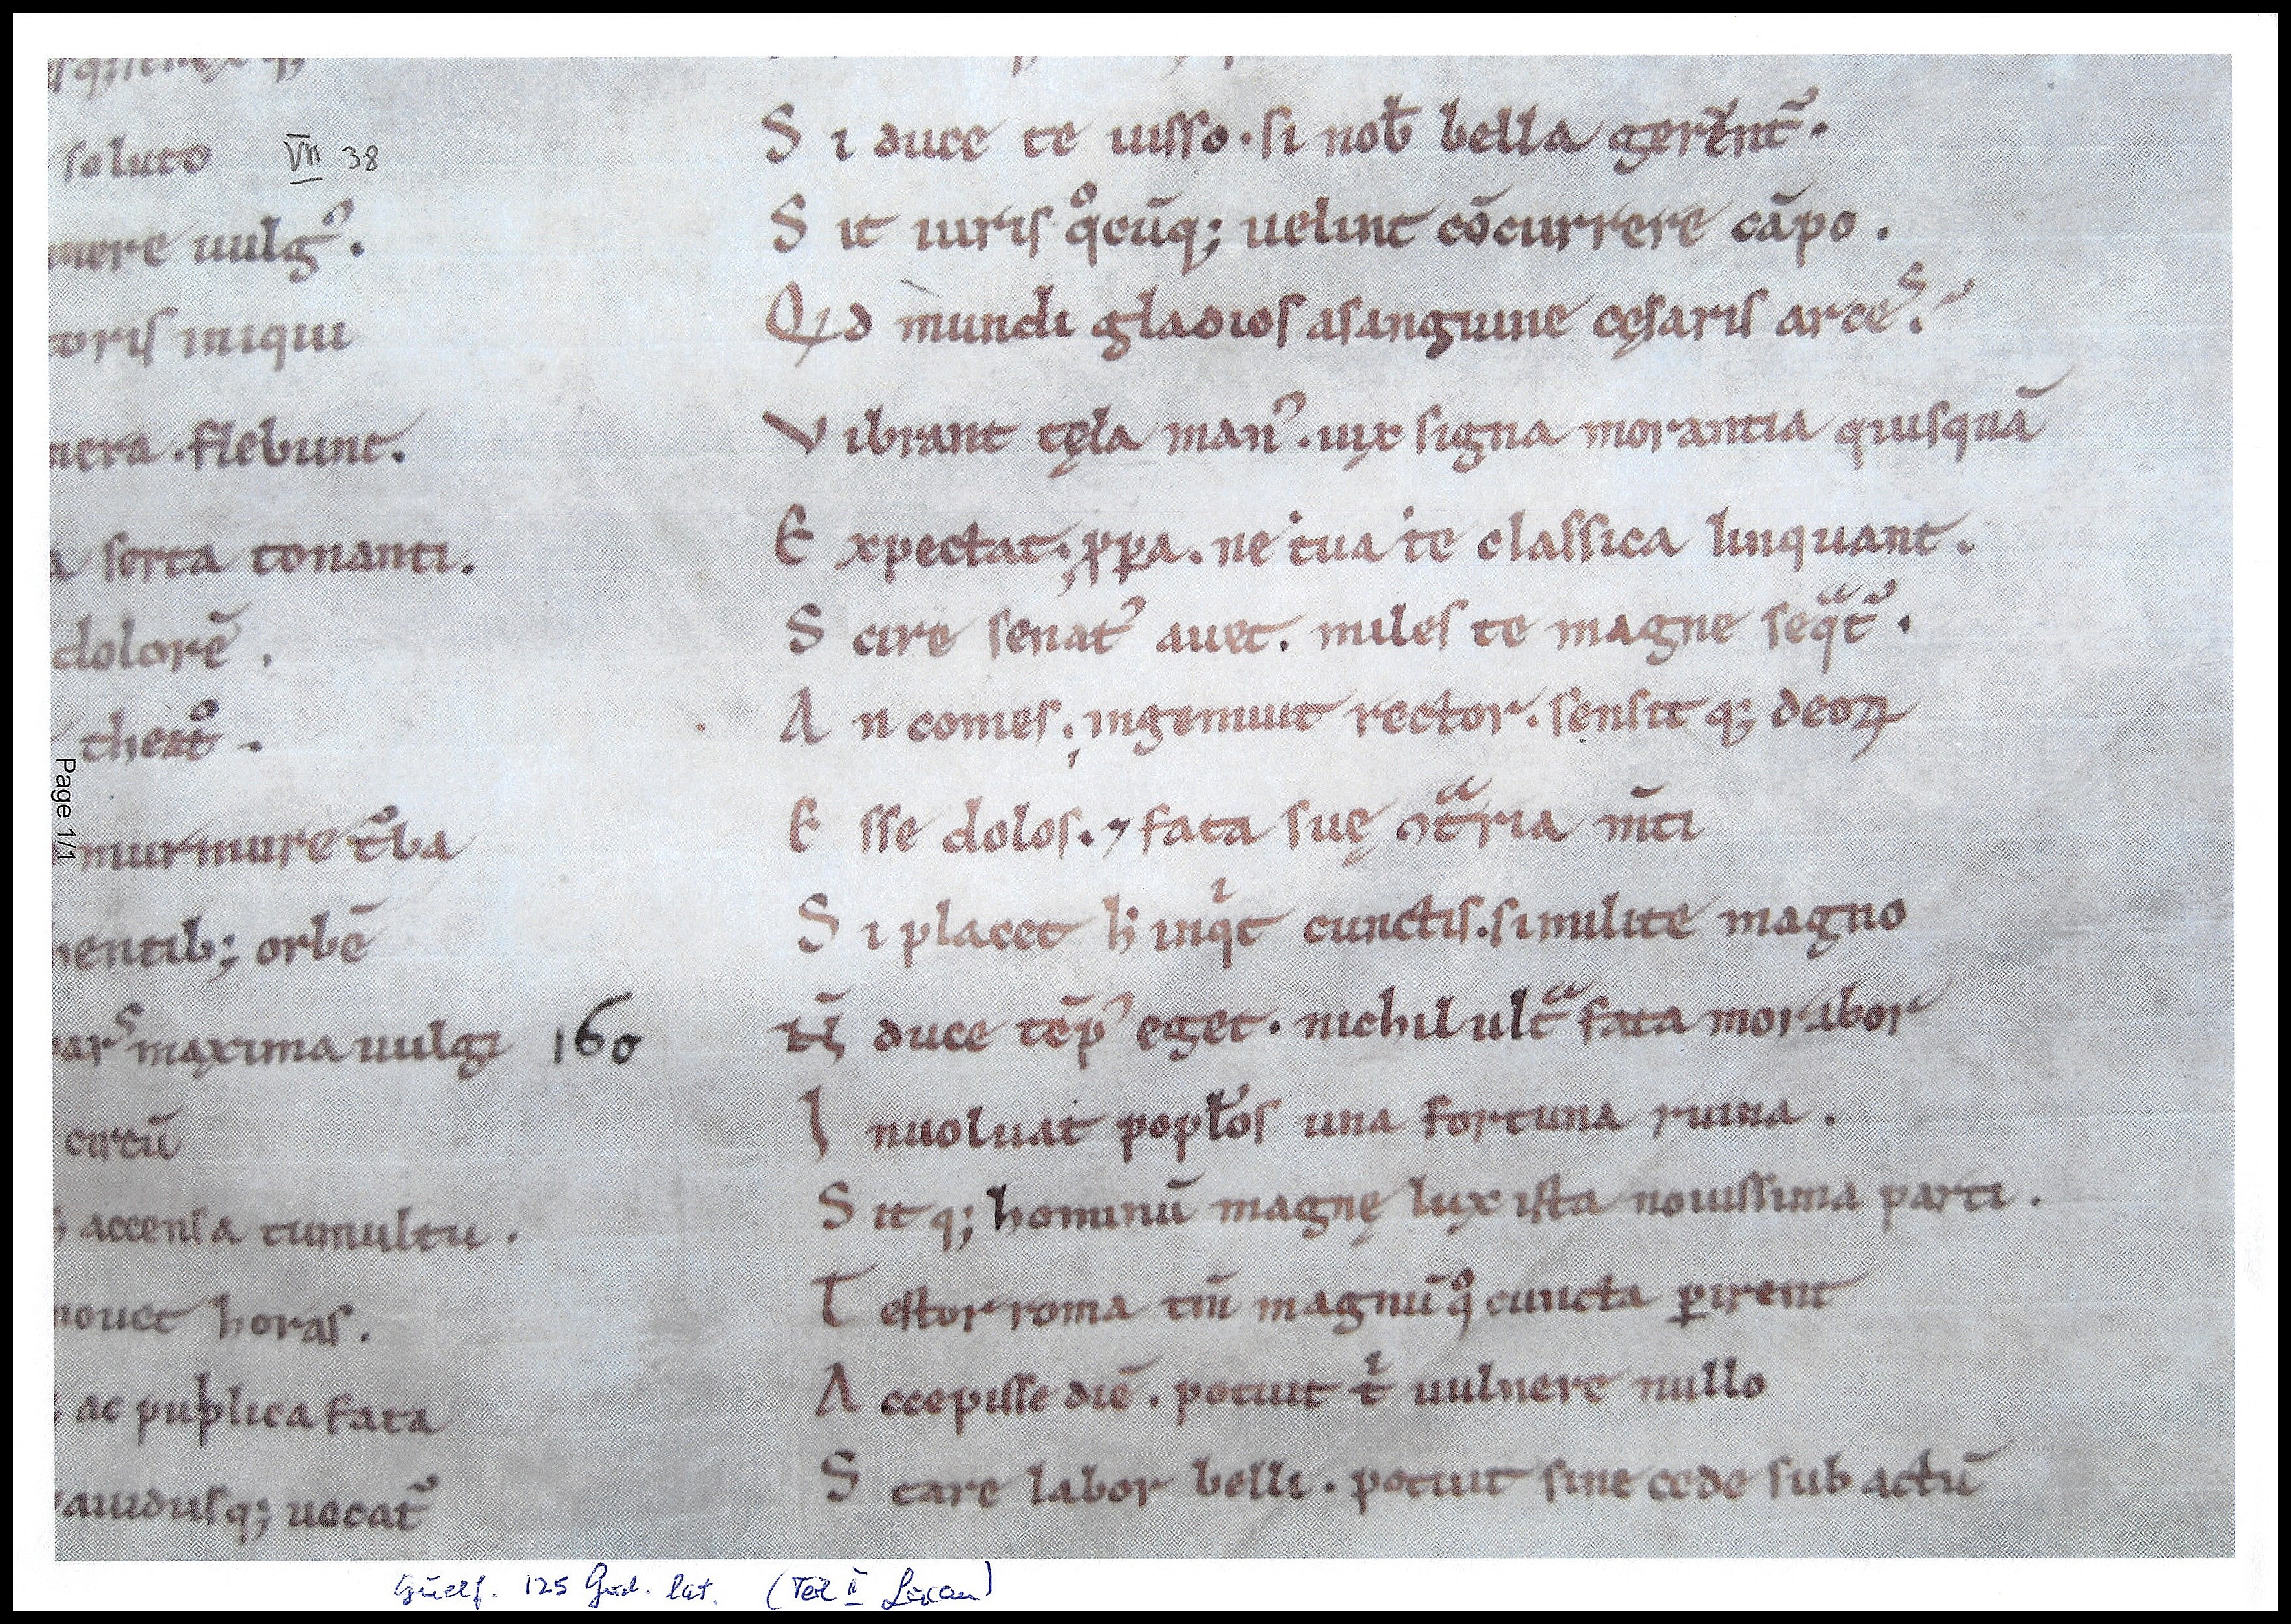 soluto VII 38
mere uulgꝰ.
toris iniqui
nera . flebunt.
a serta tonanti.
dolorē .
theatͦ .
murmure tͦba
hentib; orbē
parˢ maxima uulgi 160
circū
accensa tumultu .
mouet horas.
ac puplica fata
auidusq; uocat᷑
S i duce te iusso . si nob̄ bella gerunt᷑ .
S it iuris qͦcūq; uelint cōcurrere cāpo .
Qd mundi gladios asanguine cęsaris arceˢ.
V ibrant tęla manꝰ . uix signa morantia quisquā
E xpectat; ꝓꝑa . ne tua te classica linquant .
S cire senatꝰ auet . miles te magne seqͣt᷑ .
A n comes . ingemuit rector . sensit q; deoꝝ
E sse dolos . ⁊ fata suę ꝯtͣria m̄ti
S i placet h inqͥt cunctis . si milite magno
N̄ duce tēpꝰ eget . nichil ultͣ fata morabor
I nuoluat popl̓os una fortuna ruina .
S it q; hominū magnę lux ista nouissima parti .
T estor roma tm̄ magnū qͦ cuncta ꝑirent
A ccepisse diē . potuit tͥ uulnere nullo
S tare labor belli . potuit sine cede sub actū
Page 1/1
Guelf. 125 Gud. lat. (Teil II Lucan)